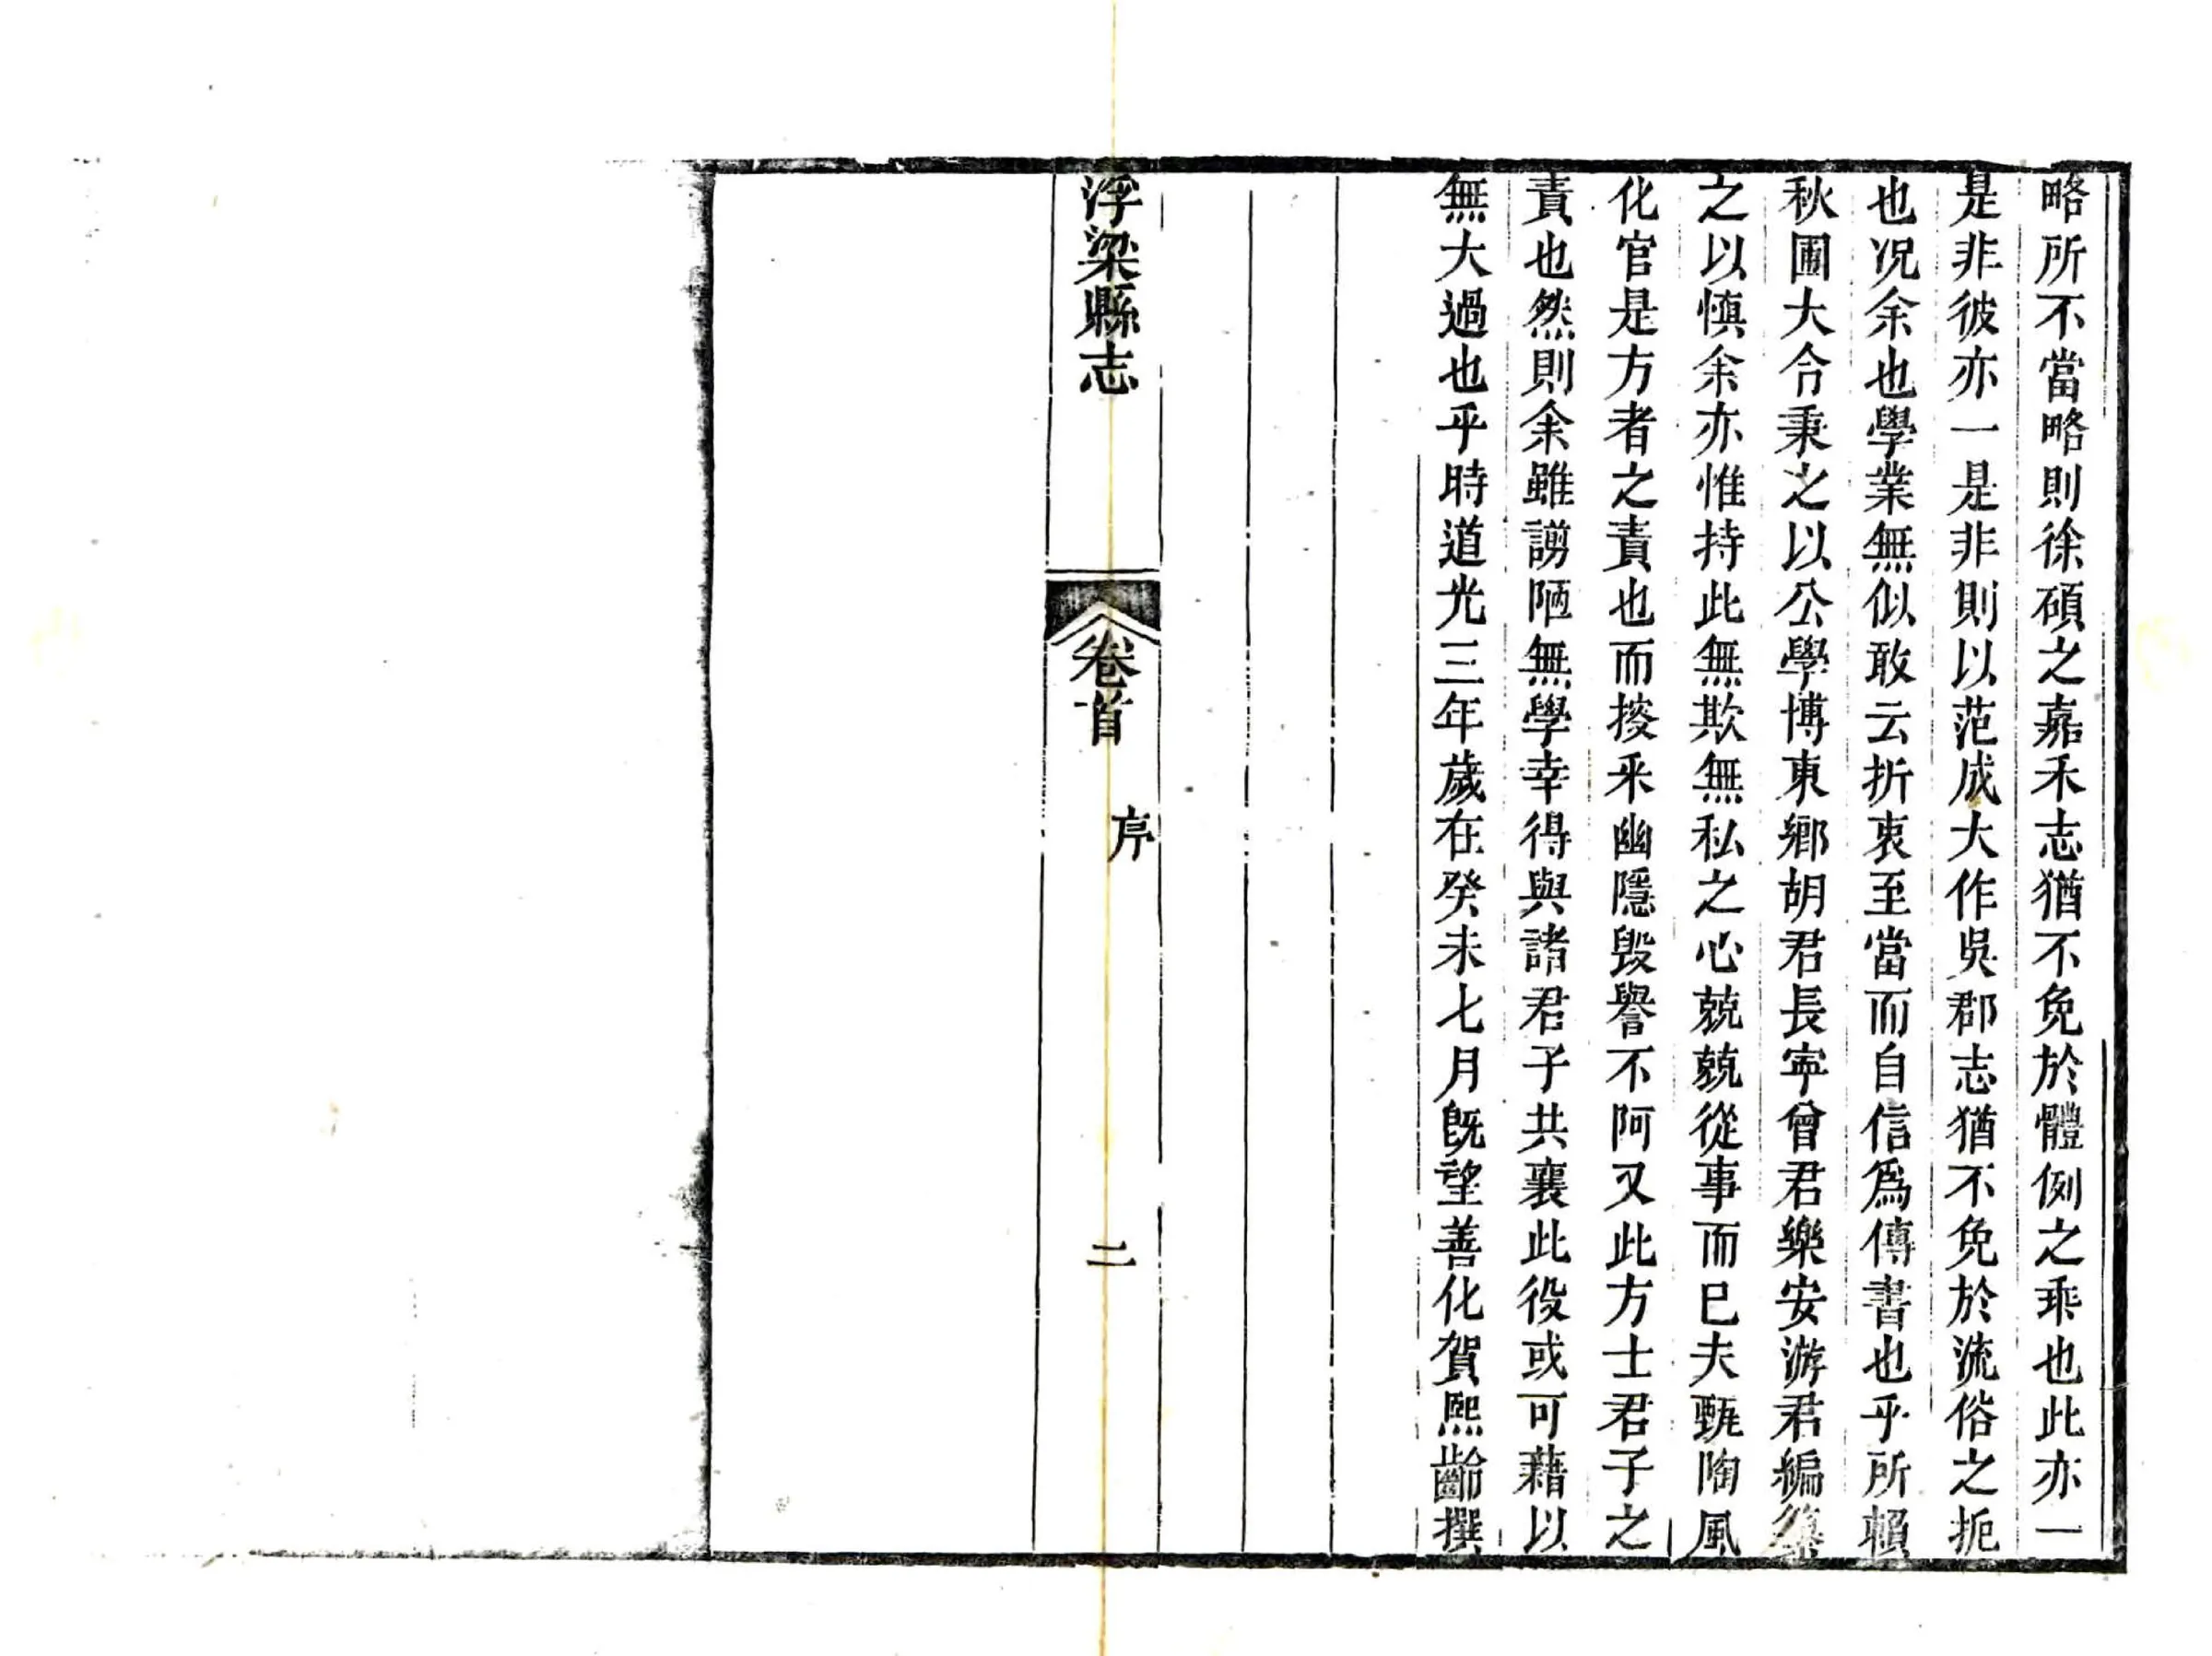 略所不當略則徐碩之嘉禾志猶不免於體例之乖也此亦一
是非彼亦一是非則以范成大作吳郡志猶不免於流俗之扼
也况余也學業無似敢云折衷至當而自信爲傳書也乎所賴
秋圃大令秉之以公學博東鄉胡君長寧曾君樂安游君編纂
之以慎余亦惟持此無欺無私之心兢兢從事而已夫甄陶風
化官是方者之責也而採釆幽隱毁譽不阿又此方士君子之
責也然則余雖謭陋無學幸得與諸君子共襄此役或可藉以
無大過也乎時道光三年歲在癸未七月旣望善化賀熙齡撰
浮梁縣志
卷首
序
二